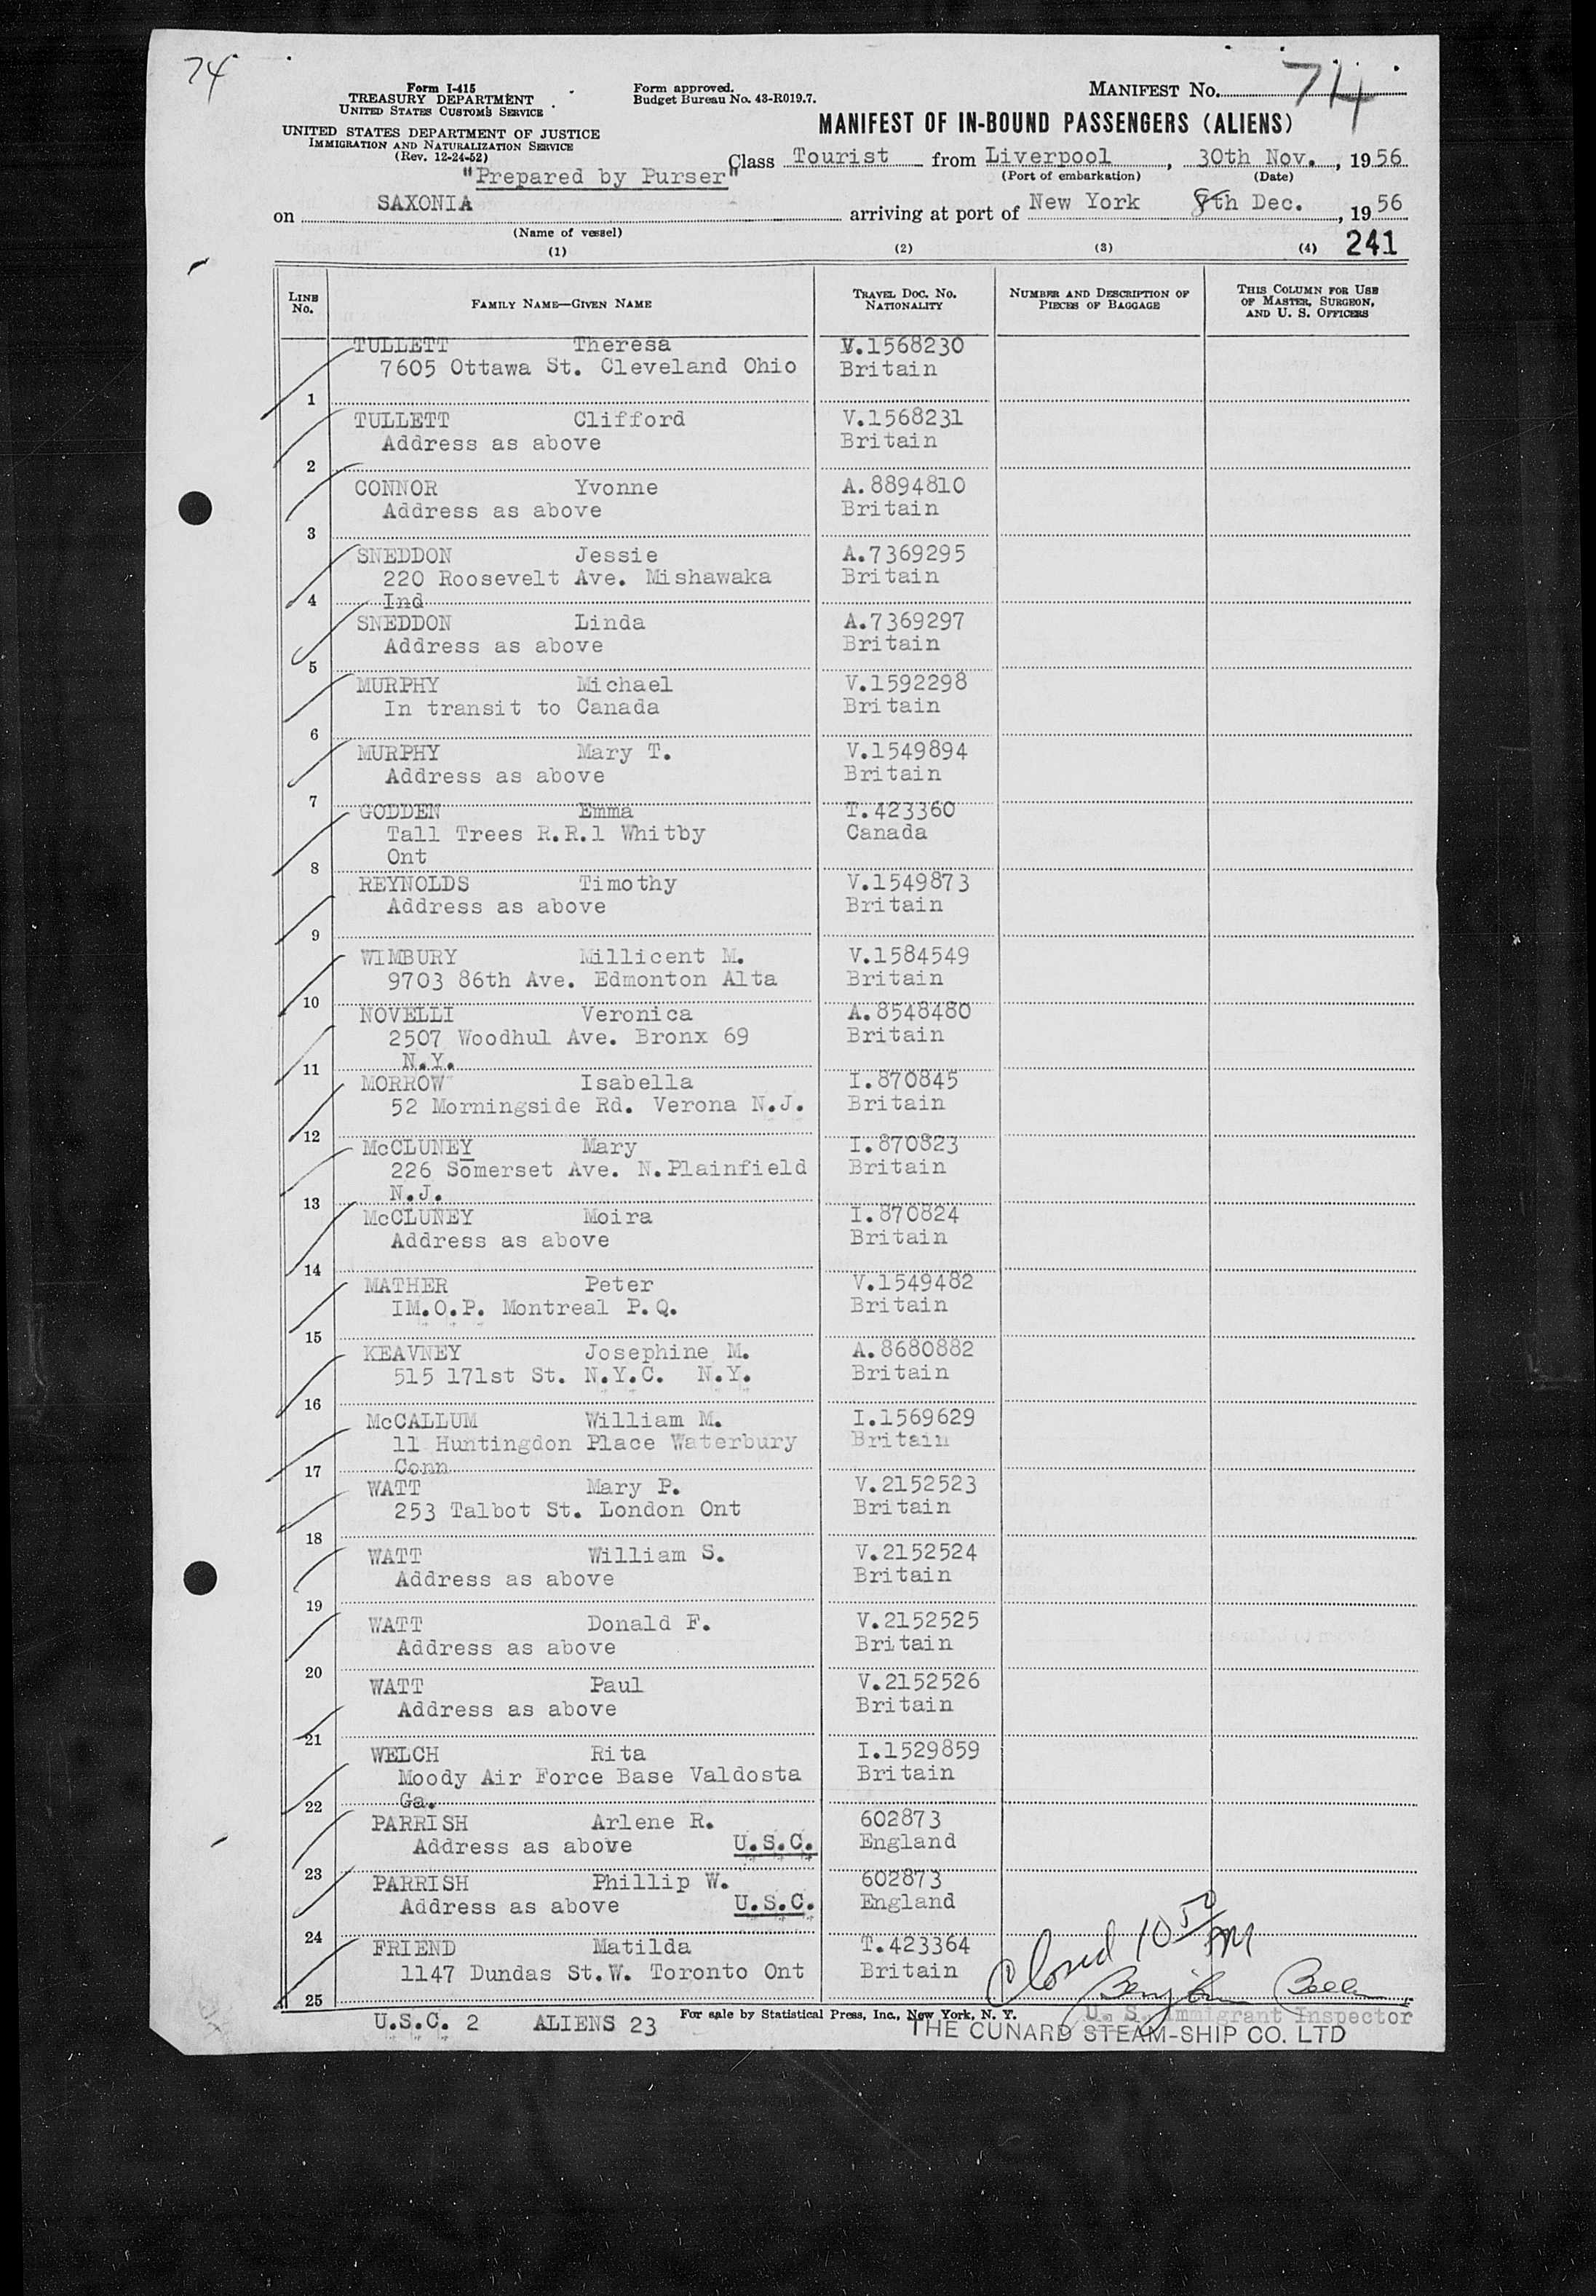 74
Form I-415
TREASURY DEPARTMENT
UNITED STATES CUSTOMS SERVICE
UNITED STATES DEPARTMENT OF JUSTICE
IMMIGRATION AND NATURALIZATION SERVICE
(Rev. 12-24-52)
Form approved.
Budget Bureau No. 43-R019.7.
MANIFEST No. 74
MANIFEST OF IN-BOUND PASSENGERS (ALIENS)
Class Tourist from Liverpool, 30th Nov., 1956
(Port of embarkation) (Date)
"Prepared by Purser"
on SAXONIA arriving at port of New York 8th Dec., 1956
(Name of vessel)
(1) (2) (3) (4) 241
LINE No. FAMILY NAME—GIVEN NAME TRAVEL DOC. No. NATIONALITY NUMBER AND DESCRIPTION OF PIECES OF BAGGAGE THIS COLUMN FOR USE OF MASTER, SURGEON, AND U. S. OFFICERS
TULLETT Theresa V.1568230
7605 Ottawa St. Cleveland Ohio Britain
1
TULLETT Clifford V.1568231
Address as above Britain
2
CONNOR Yvonne A.8894810
Address as above Britain
3
SNEDDON Jessie A.7369295
220 Roosevelt Ave. Mishawaka Britain
4 Ind
SNEDDON Linda A.7369297
Address as above Britain
5
MURPHY Michael V.1592298
In transit to Canada Britain
6
MURPHY Mary T. V.1549894
Address as above Britain
7
GODDEN Emma T.423360
Tall Trees R.R.1 Whitby Canada
Ont
8
REYNOLDS Timothy V.1549873
Address as above Britain
9
WIMBURY Millicent M. V.1584549
9703 86th Ave. Edmonton Alta Britain
10
NOVELLI Veronica A.8548480
2507 Woodhul Ave. Bronx 69 Britain
11 N.Y.
MORROW Isabella I.870845
52 Morningside Rd. Verona N.J. Britain
12
McCLUNEY Mary I.870823
226 Somerset Ave. N.Plainfield Britain
13 N.J.
McCLUNEY Moira I.870824
Address as above Britain
14
MATHER Peter V.1549482
IM.O.P. Montreal P.Q. Britain
15
KEAVNEY Josephine M. A.8680882
515 171st St. N.Y.C. N.Y. Britain
16
McCALLUM William M. I.1569629
11 Huntingdon Place Waterbury Britain
17 Conn
WATT Mary P. V.2152523
253 Talbot St. London Ont Britain
18
WATT William S. V.2152524
Address as above Britain
19
WATT Donald F. V.2152525
Address as above Britain
20
WATT Paul V.2152526
Address as above Britain
21
WELCH Rita I.1529859
Moody Air Force Base Valdosta Britain
22 Ga.
PARRISH Arlene R. 602873
Address as above U.S.C. England
23
PARRISH Phillip W. 602873
Address as above U.S.C. England
24
FRIEND Matilda T.423364
1147 Dundas St.W. Toronto Ont Britain
25
Closed 10 50 PM
U.S.C. 2 ALIENS 23 For sale by Statistical Press, Inc., New York, N. Y. U. S. Immigrant Inspector
THE CUNARD STEAM-SHIP CO. LTD